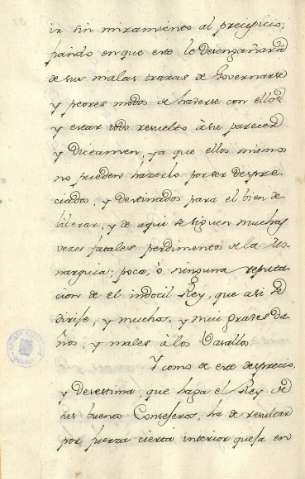 ir sin miramiento al precipicio,
pando en que esto le desengañara
de sus malas trazas de Governarse
y peores modos de haverse con ellos
y estar todo resuelto à su parecer
y Dictamen, ya que ellos mismos
no pueden hacerlo por ser despre-
ciados, y destinados para el bien de
liverar, y de aqui se siguen muchas
vezes fatales perdimentos de la Mo-
narquia; poca, ò ninguna reputa-
cion de el indocil Rey, que asi se
dirije, y muchos, y muy graves Da-
ños, y males a los Vasallos
Y como de este desprecio,
y desestima, que haga el Rey de
sus buenos Consejeros, ha de resultar
por fuerza cierta interior quexa en